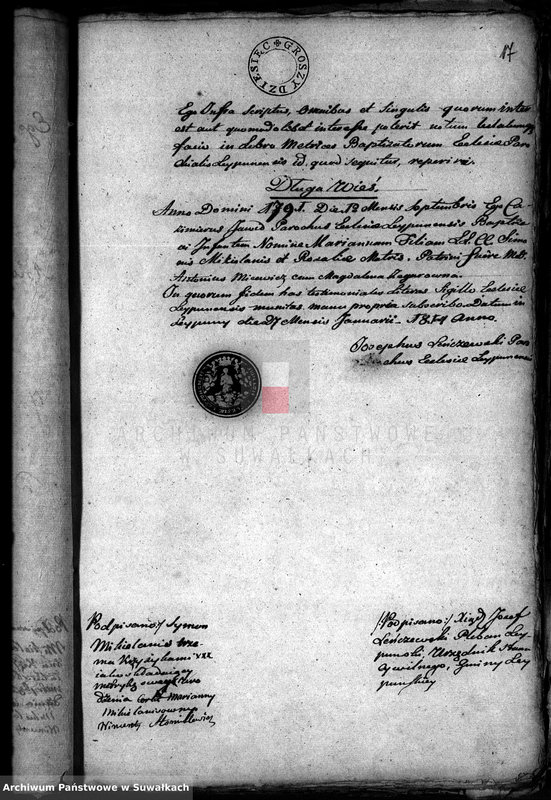 17
DZIESIĘC GROSZY
Ego Infra Scriptus, Omnibus et Singulis quorum inter
est aut quomodolibet interesse poterit notum testatumq
facio in Libro Metrices Baptisatorum Ecclesiæ Paro
chialis Leypunensis id quod sequitur, reperiri.
Długa Wieś.
Anno Domini 1791. Die 12 Mensis Septembris Ego Ca
zimirus Parochus Ecclesiæ Leypunensis Baptiza
vi Infantem Nomine Mariannam Filiam Simo
nis Mikielanis et Rosaliæ Patrini fuere
Antonius cum Magdalena
In quorum fidem has testimoniales Literas Sigillo Ecclesiæ
Leypunensis munitas manu propria subscribo. Datum in
Leypuny die 27 Mensis Januarii 1814 Anno.
Josephus Leńczewski Par
ochus Ecclesiæ Leypunensis
ARCHIWUM PAŃSTWOWE
W SUWAŁKACH
Podpisano:/ Symon
Mikielanis trze
ma Krzyżykami
składaiący
metrykę
Córki Marianny
Wincenty
/:Podpisano:/ Xiądz Jozef
Leńczewski Pleban Ley
puński, Urzędnik Stanu
Cywilnego, Gminy Ley
puńskiey
Archiwum Państwowe w Suwałkach